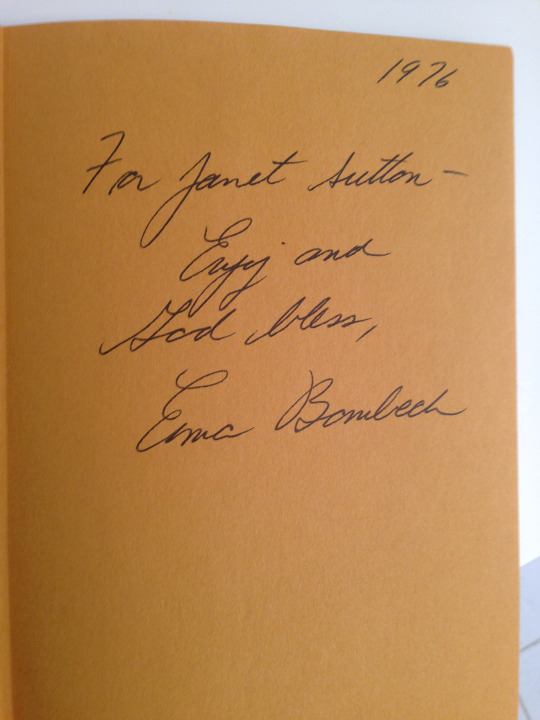 1976
For Janet Sutton —
Enjoy and
God bless,
Erma Bombeck